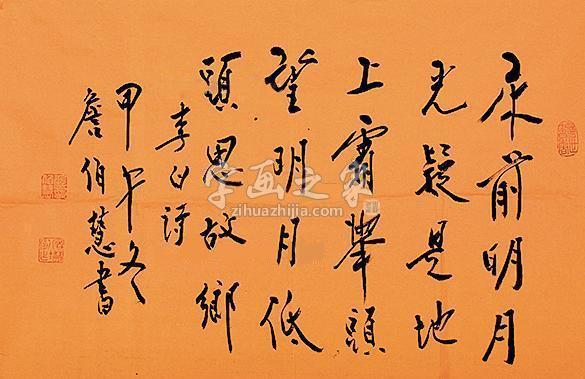 床前明月
光疑是地
上霜举頭
望明月低
頭思故鄉
李白詩
甲午冬
詹伯慧書
字画之家
zihuazhijia.com